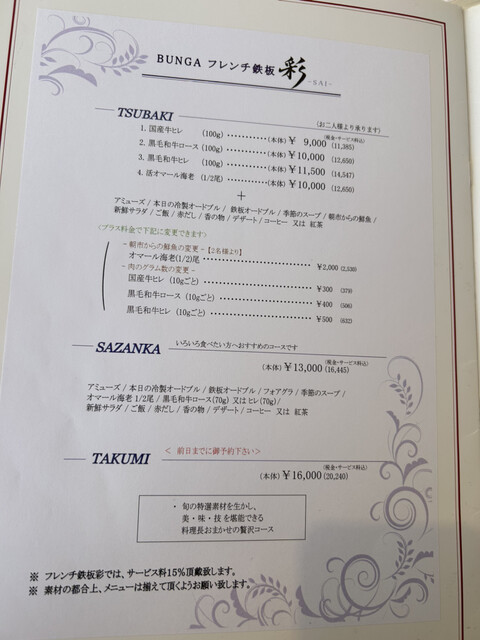 BUNGA フレンチ鉄板 彩
-SAI-
TSUBAKI (お二人様より承ります)
(税金・サービス料込)
1. 国産牛ヒレ (100g) ・・・・・・・・・・・ (本体) ¥ 9,000 (11,385)
2. 黒毛和牛ロース (100g) ・・・・・・・・・・・ (本体) ¥10,000 (12,650)
3. 黒毛和牛ヒレ (100g) ・・・・・・・・・・・ (本体) ¥11,500 (14,547)
4. 活オマール海老 (1/2尾) ・・・・・・・・・・・ (本体) ¥10,000 (12,650)
+
アミューズ / 本日の冷製オードブル / 鉄板オードブル / 季節のスープ / 朝市からの鮮魚 /
新鮮サラダ / ご飯 / 赤だし / 香の物 / デザート / コーヒー 又は 紅茶
<プラス料金で下記に変更できます>
- 朝市からの鮮魚の変更 - 【2名様より】
オマール海老(1/2)尾 ・・・・・・・・・・・ ¥2,000 (2,530)
- 肉のグラム数の変更 -
国産牛ヒレ (10gごと) ・・・・・・・・・・・ ¥300 (379)
黒毛和牛ロース (10gごと) ・・・・・・・・・・・ ¥400 (506)
黒毛和牛ヒレ (10gごと) ・・・・・・・・・・・ ¥500 (632)
SAZANKA いろいろ食べたい方へおすすめのコースです
(税金・サービス料込)
(本体) ¥13,000 (16,445)
アミューズ / 本日の冷製オードブル / 鉄板オードブル / フォアグラ / 季節のスープ /
オマール海老 1/2尾 / 黒毛和牛ロース(70g) 又は ヒレ(70g) /
新鮮サラダ / ご飯 / 赤だし / 香の物 / デザート / コーヒー 又は 紅茶
TAKUMI < 前日までに御予約下さい>
(税金・サービス料込)
(本体) ¥16,000 (20,240)
・ 旬の特選素材を生かし、
美・味・技を堪能できる
料理長おまかせの贅沢コース
※ フレンチ鉄板彩では、サービス料15%頂戴致します。
※ 素材の都合上、メニューは揃えて頂くようお願い致します。